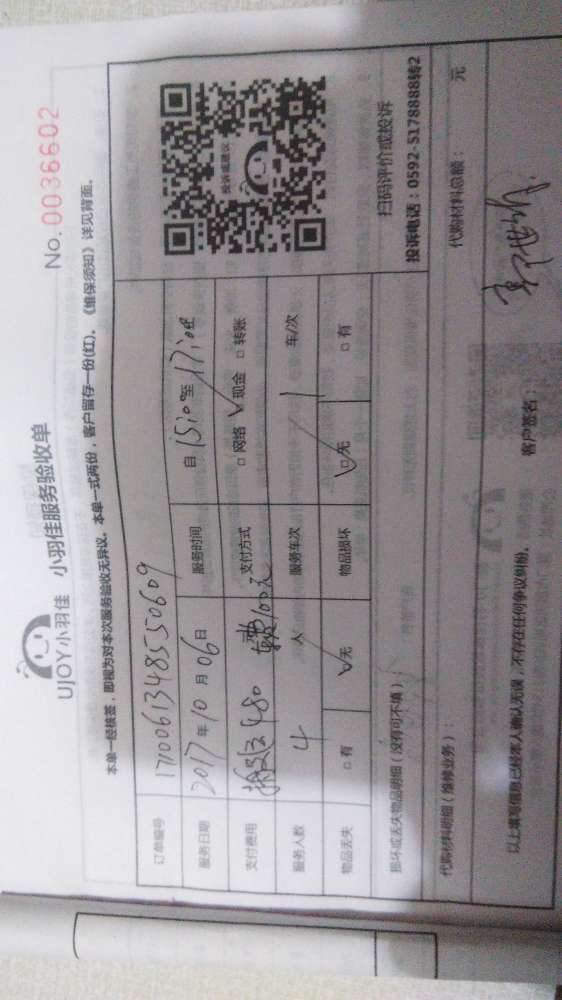 UJOY小羽佳 小羽佳服务验收单
No. 0036602
本单一经核签，即视为对本次服务验收无异议。本单一式两份，客户留存一份(红)。《维保须知》详见背面。
订单编号 17100613485550609
服务日期 2017年10月06日 服务时间 自15:00至17:00
支付费用 搬运480 车费100元 支付方式 □网络 ✓现金 □转账
服务人数 4 人 服务车次 1 车/次
物品丢失 □有 ✓无 物品损坏 ✓□无 □有
投诉或建议
扫码评价或投诉
投诉电话：0592-5178888转2
损坏或丢失物品明细（没有可不填）：
代购材料明细（维修业务）： 代购材料总额： 元
以上填写信息已经本人确认无误，不存在任何争议纠纷。 客户签名：